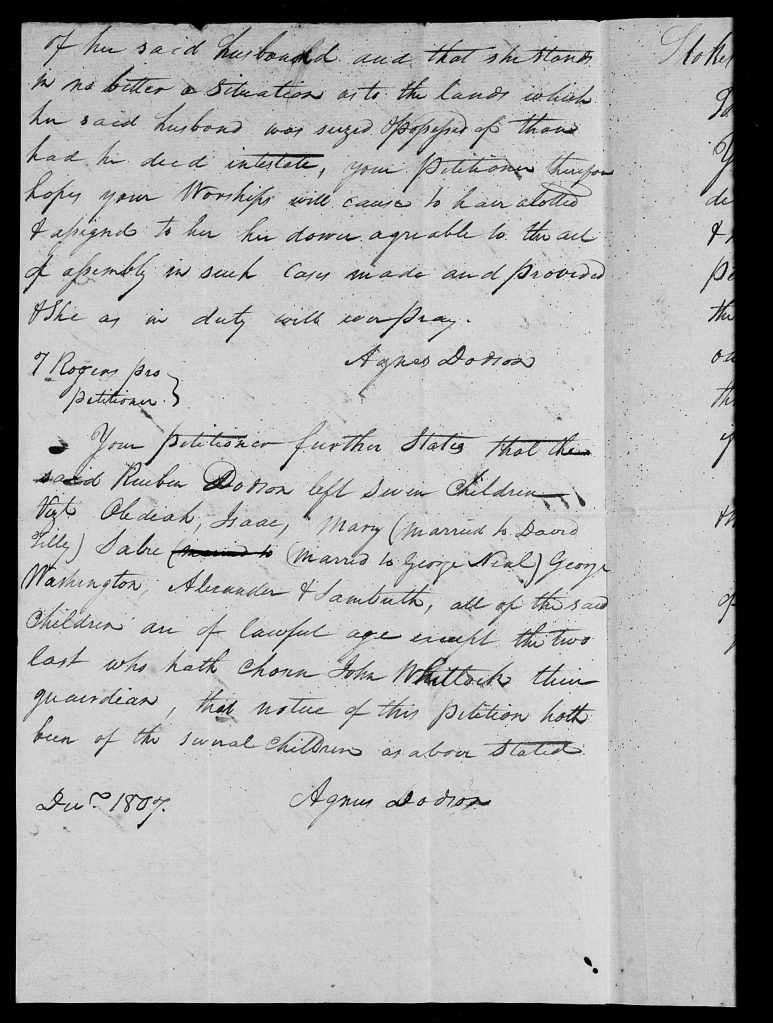 of her said husband and that she stands
in no better a situation as to the lands which
her said husband was seized & possessed of than
had he died intestate, your petitioner therefore
hopes your Worships will cause to have alotted
& assignd to her her dower agreable to the act
of assembly in such cases made and provided
& She as in duty will ever pray.
Agnes Dodson
Rogers pro
petitioner }
Your petitioner further States that the
said Reuben Dodson left seven Children
Vizt Obediah, Isaac, Mary (married to David
Tilly) Sabre (married to (married to George Neal) George
Washington, Alexander & Lambuth, all of the said
Children are of lawful age except the two
last who hath chosen John Whitlock their
guardian, that notice of this petition hath
been of the several children as above Stated
Decr. 1807.
Agnes Dodson
Stokes
&
the
of